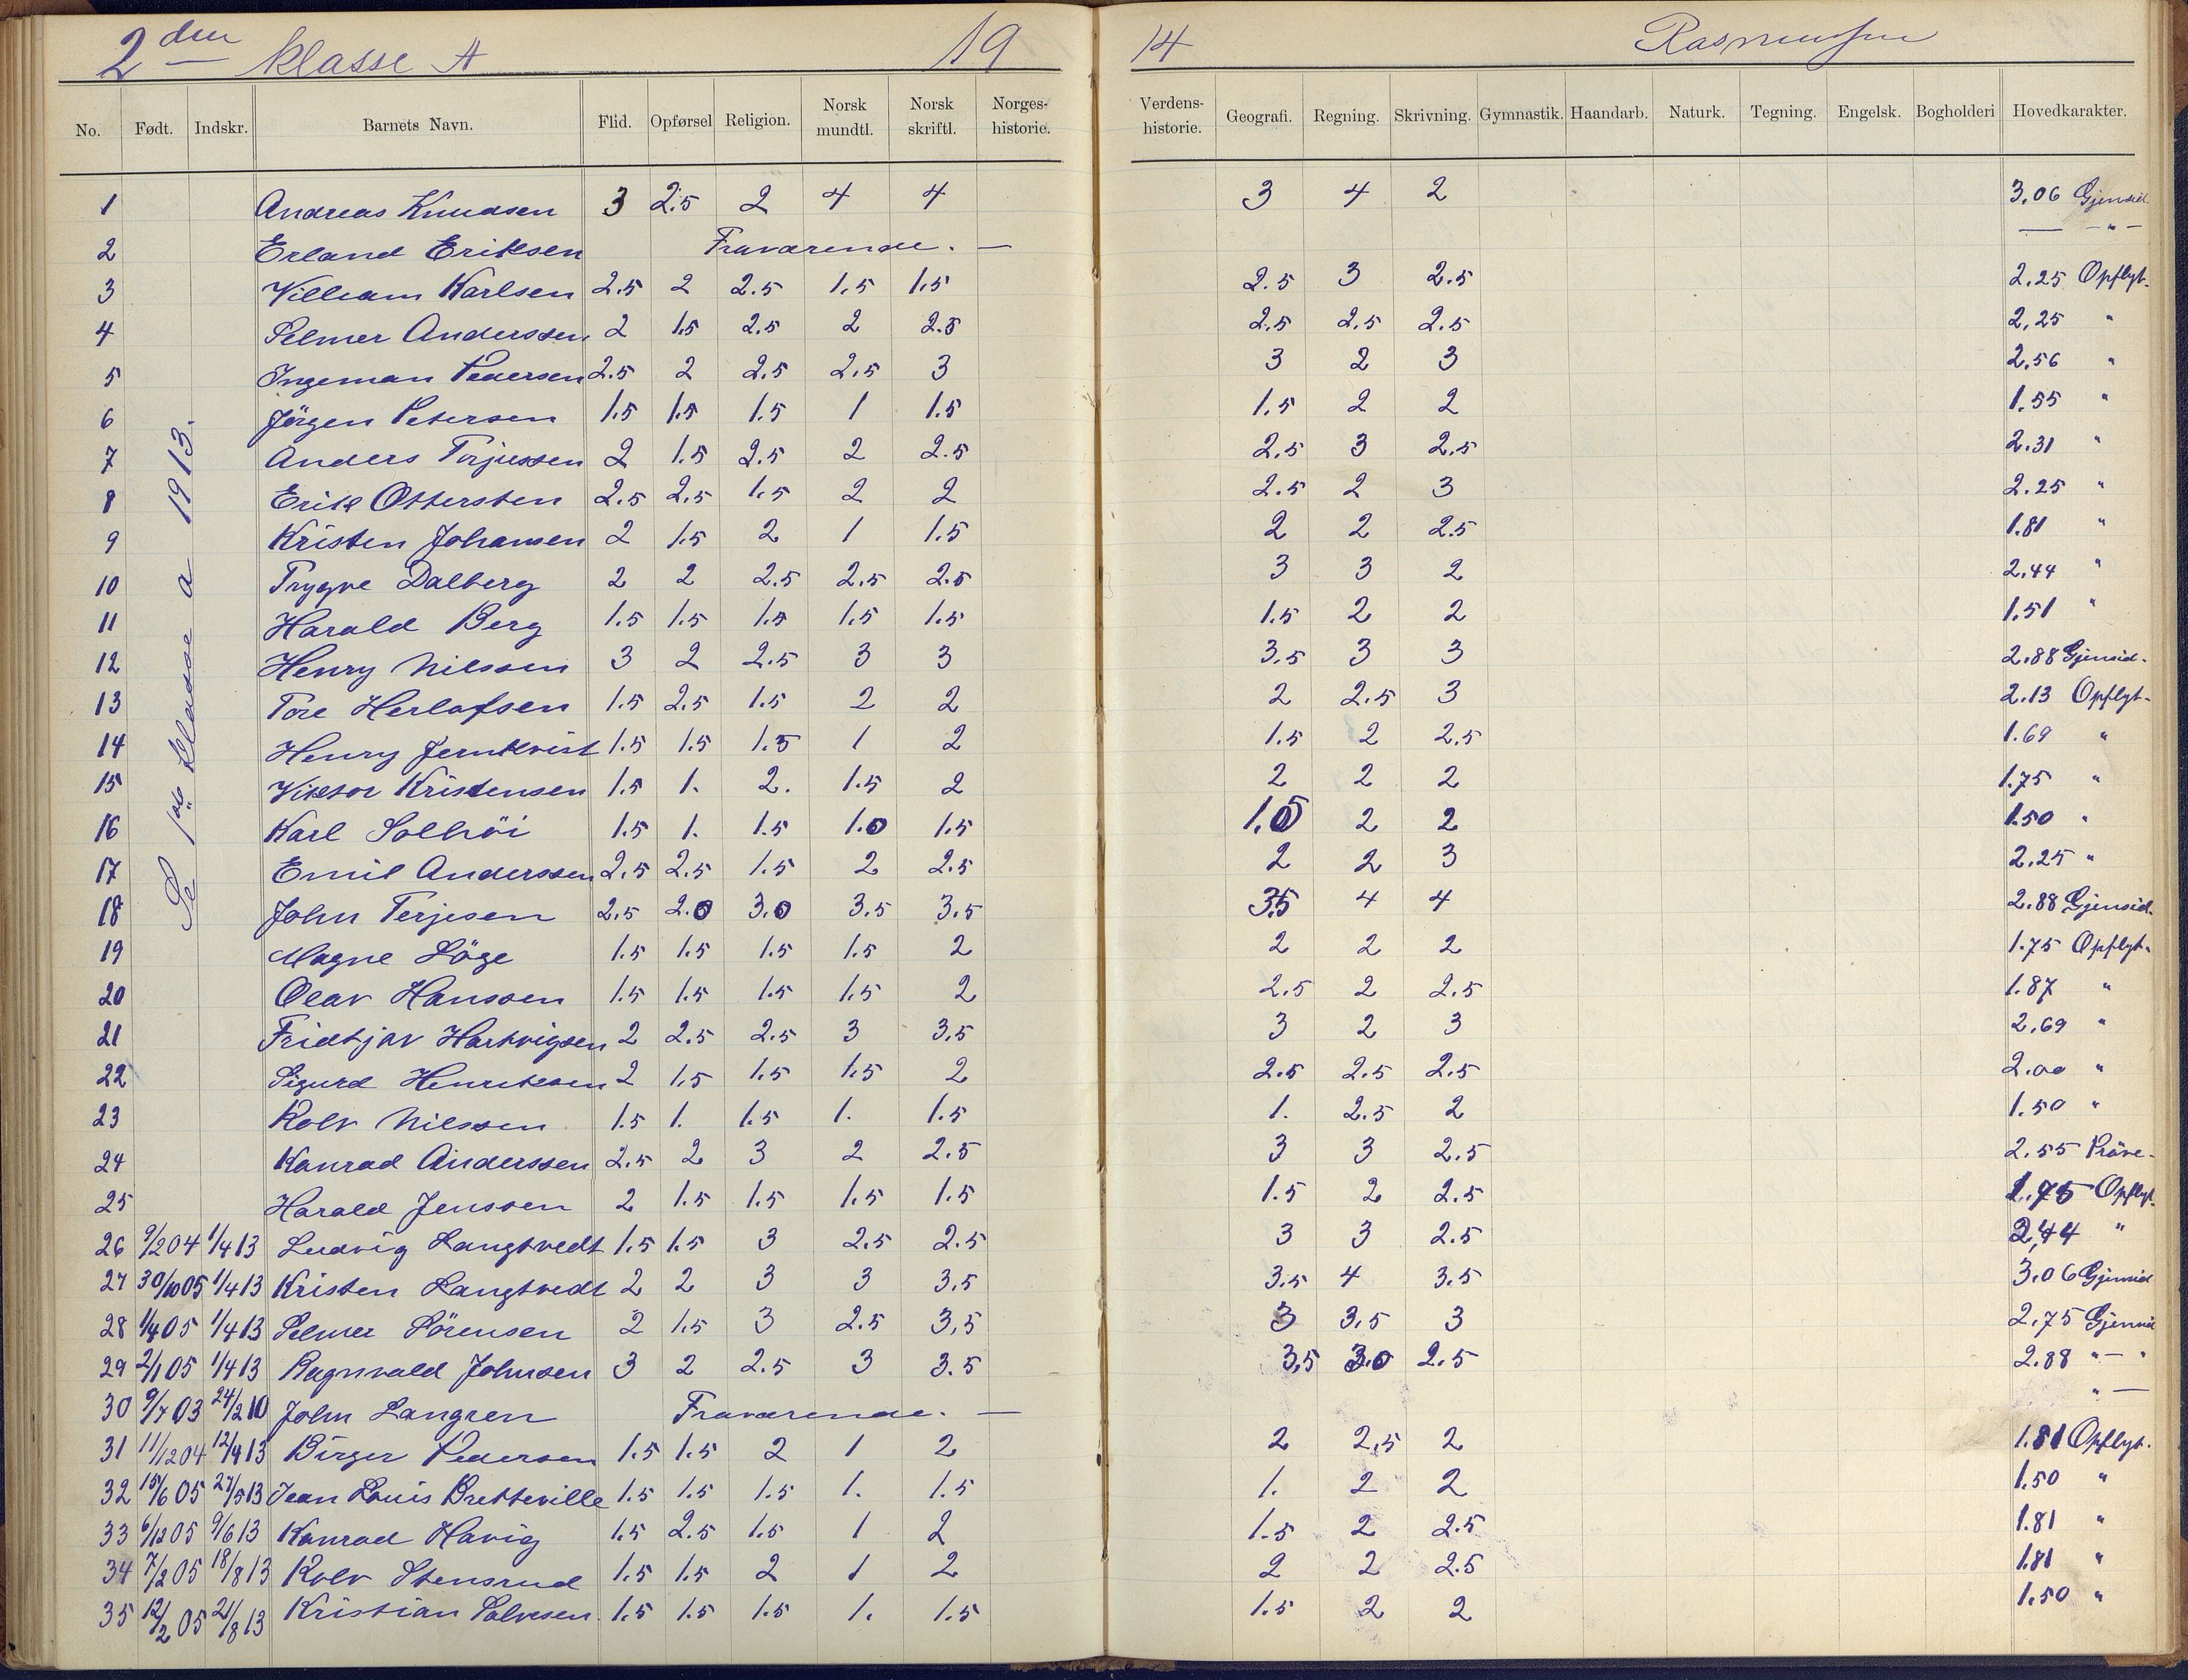 2den klasse A 19 14 Rasmussen
No. Født. Indskr. Barnets Navn. Flid. Opførsel Religion. Norsk mundtl. Norsk skriftl. Norges-historie. Verdens-historie. Geografi. Regning. Skrivning. Gymnastik. Haandarb. Naturk. Tegning. Engelsk. Bogholderi Hovedkarakter.
Se 1ste klasse a 1913.
1 Andreas Knudsen 3 2.5 2 4 4 3 4 2 3.06 Gjensid.
2 Erland Eriksen Fraværende. — — - " -
3 Villiam Karlsen 2.5 2 2.5 1.5 1.5 2.5 3 2.5 2.25 Opflyt.
4 Selmer Anderssen 2 1.5 2.5 2 2.5 2.5 2.5 2.5 2.25 "
5 Ingeman Pedersen 2.5 2 2.5 2.5 3 3 2 3 2.56 "
6 Jörgen Petersen 1.5 1.5 1.5 1 1.5 1.5 2 2 1.55 "
7 Anders Torjussen 2 1.5 2.5 2 2.5 2.5 3 2.5 2.31 "
8 Erik Ottersten 2.5 2.5 1.5 2 2 2.5 2 3 2.25 "
9 Kristen Johansen 2 1.5 2 1 1.5 2 2 2.5 1.81 "
10 Trygve Dalberg 2 2 2.5 2.5 2.5 3 3 2 2.44 "
11 Harald Berg 1.5 1.5 1.5 1.5 1.5 1.5 2 2 1.51 "
12 Henry Nilssen 3 2 2.5 3 3 3.5 3 3 2.88 Gjensid.
13 Tore Herlofsen 1.5 2.5 1.5 2 2 2 2.5 3 2.13 Opflyt.
14 Henry Jernkvist 1.5 1.5 1.5 1 2 1.5 2 2.5 1.69 "
15 Viktor Kristensen 1.5 1. 2. 1.5 2 2 2 2 1.75 "
16 Karl Solhöi 1.5 1. 1.5 1.0 1.5 1.5 2 2 1.50 "
17 Emil Anderssen 2.5 2.5 1.5 2 2.5 2 2 3 2.25 "
18 John Terjesen 2.5 2.0 3.0 3.5 3.5 3.5 4 4 2.88 Gjensid.
19 Magne Löge 1.5 1.5 1.5 1.5 2 2 2 2 1.75 Opflyt.
20 Olav Hanssen 1.5 1.5 1.5 1.5 2 2.5 2 2.5 1.87 "
21 Fridtjov Hartvigsen 2 2.5 2.5 3 3.5 3 2 3 2.69 "
22 Sigurd Henriksen 2 1.5 1.5 1.5 2 2.5 2.5 2.5 2.00 "
23 Rolv Nilssen 1.5 1. 1.5 1. 1.5 1. 2.5 2 1.50 "
24 Konrad Anderssen 2.5 2 3 2 2.5 3 3 2.5 2.55 Pröve.
25 Harald Jenssen 2 1.5 1.5 1.5 1.5 1.5 2 2.5 1.75 Opflyt.
26 9/2 04 1/4 13 Ludvig Langtvedt 1.5 1.5 3 2.5 2.5 3 3 2.5 2,44 "
27 30/10 05 1/4 13 Kristen Langtvedt 2 2 3 3 3.5 3.5 4 3.5 3.06 Gjensid
28 1/4 05 1/4 13 Selmer Sörensen 2 1.5 3 2.5 3,5 3 3.5 3 2.75 Gjensid
29 2/1 05 1/4 13 Ragnvald Johnsen 3 2 2.5 3 3.5 3,5 3.0 2.5 2.88 " - "
30 9/7 03 24/2 10 John Langren Fraværende. — " —
31 11/12 04 12/4 13 Birger Pedersen 1.5 1.5 2 1 2 2 2,5 2 1.81 Opflyt.
32 15/6 05 27/5 13 Jean Louis Bretteville 1.5 1.5 1.5 1. 1.5 1. 2 2 1.50 "
33 6/12 05 9/6 13 Konrad Havig 1.5 2.5 1.5 1 2 1.5 2 2.5 1.81 "
34 7/2 05 18/8 13 Rolv Stensrud 1.5 1.5 2 1 2 2 2 2.5 1.81 "
35 12/2 05 21/8 13 Kristian Salvesen 1.5 1.5 1.5 1. 1.5 1.5 2 2 1.50 "